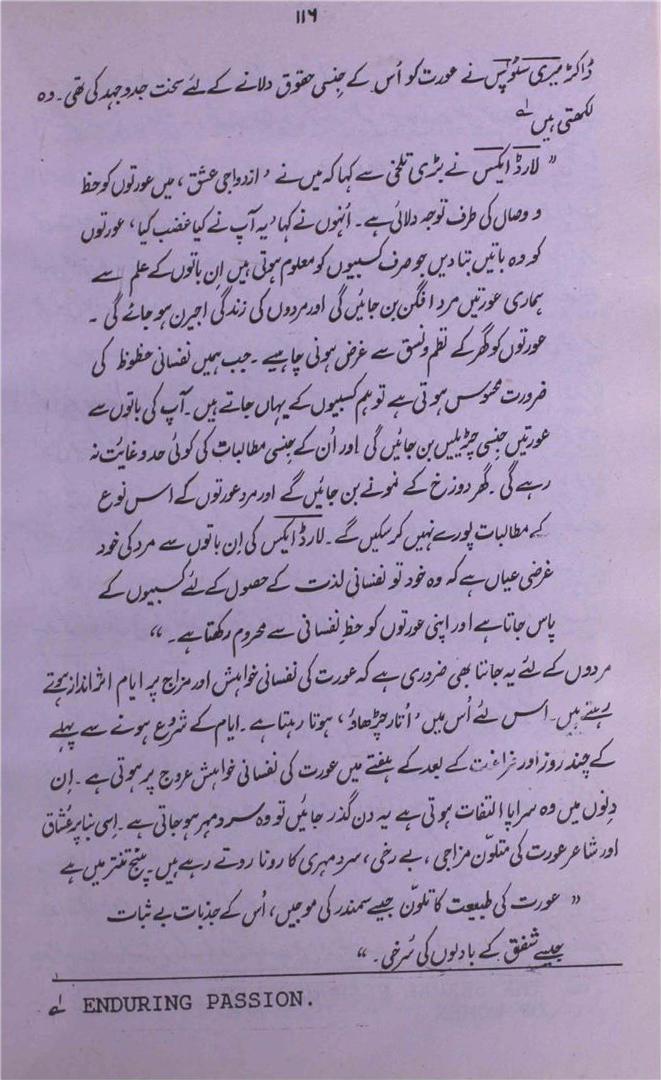 ۱۱۶
ڈاکٹر میری سٹوپس نے عورت کو اُس کے جِنسی حقوق دلانے کے لئے سخت جدوجہد کی تھی۔ وہ
لکھتی ہیں ؎۱
” لارڈ ایکس نے بڑی تلخی سے کہا کہ میں نے ’ ازدواجی عشق ‘ میں عورتوں کو حظ
و وصال کی طرف توجہ دلائی ہے۔ اُنہوں نے کہا ’ یہ آپ نے کیا غضب کیا ، عورتوں
کو وہ باتیں بتا دیں جو صرف کسبیوں کو معلوم ہوتی ہیں اِن باتوں کے علم سے
ہماری عورتیں مرد افگن بن جائیں گی اور مردوں کی زندگی اجیرن ہو جائے گی ۔
عورتوں کو گھر کے نظم و نسق سے غرض ہونی چاہیے ۔ جب ہمیں نفسانی حظوظ کی
ضرورت محسوس ہوتی ہے تو ہم کسبیوں کے یہاں جاتے ہیں ۔ آپ کی باتوں سے
عورتیں جنسی چڑیلیں بن جائیں گی اور اُن کے جنسی مطالبات کی کوئی حد و غایت نہ
رہے گی ۔ گھر دوزخ کے نمونے بن جائیں گے اور مرد عورتوں کے اس نوع
کے مطالبات پورے نہیں کر سکیں گے ۔ لارڈ ایکس کی اِن باتوں سے مرد کی خود
غرضی عیاں ہے کہ وہ خود تو نفسانی لذت کے حصول کے لئے کسبیوں کے
پاس جاتا ہے اور اپنی عورتوں کو حظِ نفسانی سے محروم رکھتا ہے ۔ “
مردوں کے لئے یہ جاننا بھی ضروری ہے کہ عورت کی نفسانی خواہش اور مزاج پر ایام اثر انداز ہوتے
رہتے ہیں۔ اس لئے اُس میں ’ اُتار چڑھاؤ ‘ ہوتا رہتا ہے ۔ ایام کے شروع ہونے سے پہلے
کے چند روز اور فراغت کے بعد کے ہفتے میں عورت کی نفسانی خواہش عروج پر ہوتی ہے ۔ اِن
دِنوں میں وہ سراپا التفات ہوتی ہے یہ دن گذر جائیں تو وہ سرد مہر ہو جاتی ہے ۔ اِسی بنا پر عُشاق
اور شاعر عورت کی متلوّن مزاجی ، بے رخی ، سرد مہری کا رونا روتے رہے ہیں ۔ پنچ تنتر میں ہے
” عورت کی طبیعت کا تلوّن جیسے سمندر کی موجیں ، اُس کے جذبات بے ثبات
جیسے شفق کے بادلوں کی سُرخی ۔ “
؎۱ ENDURING PASSION.